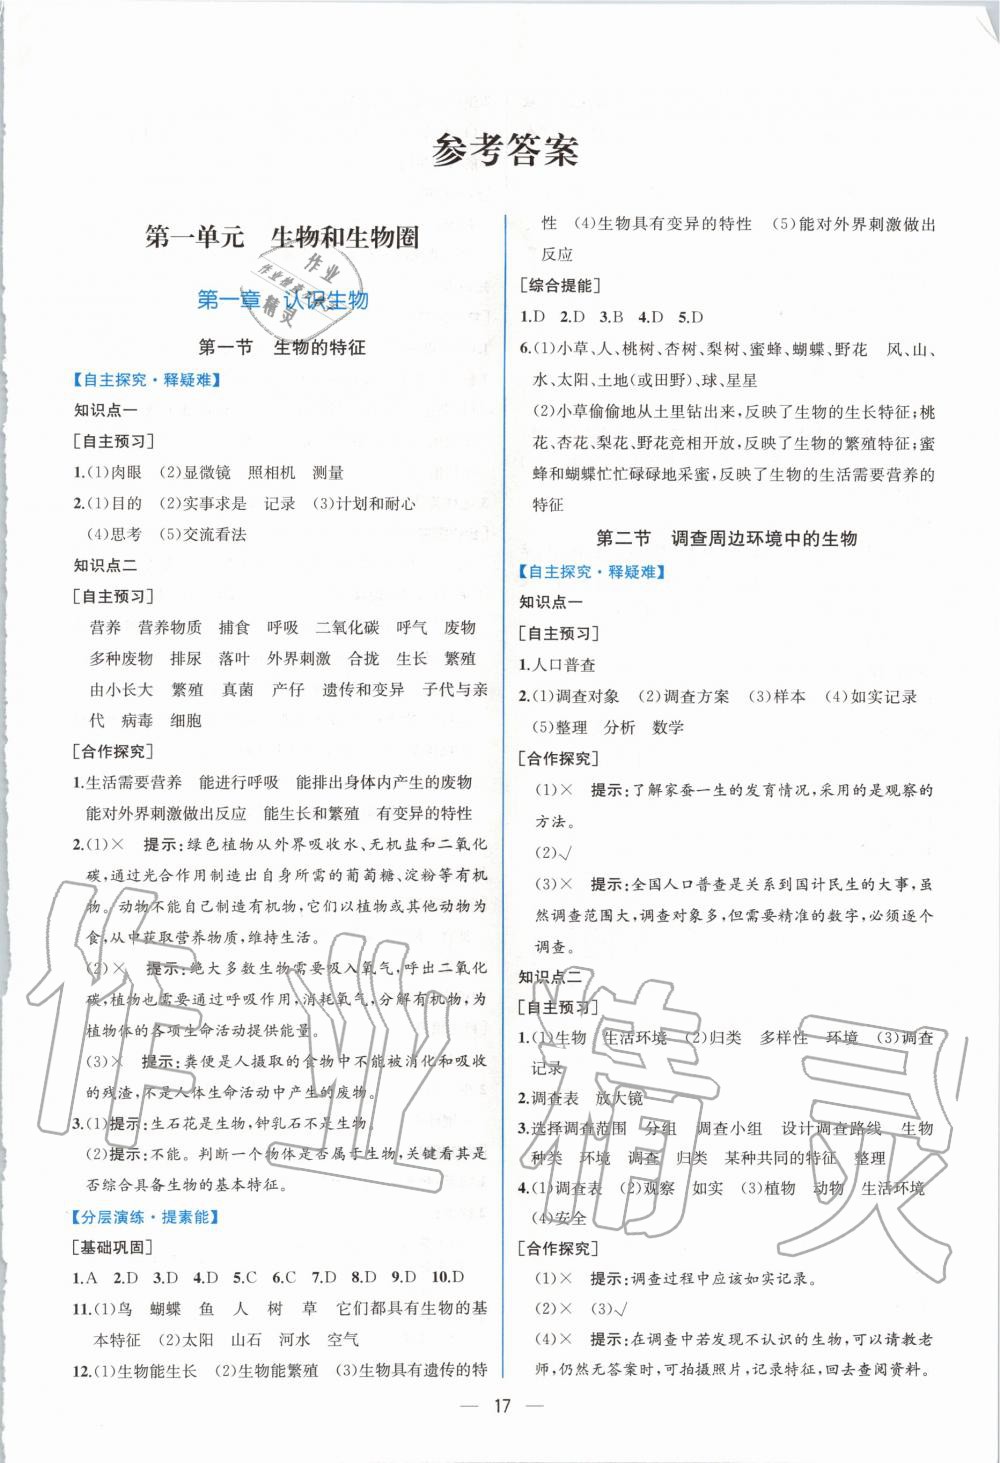 参考答案
第一单元　生物和生物圈
第一章　认识生物
第一节　生物的特征
【自主探究·释疑难】
知识点一
[自主预习]
1.(1)肉眼　(2)显微镜　照相机　测量
2.(1)目的　(2)实事求是　记录　(3)计划和耐心
(4)思考　(5)交流看法
知识点二
[自主预习]
营养　营养物质　捕食　呼吸　二氧化碳　呼气　废物
多种废物　排尿　落叶　外界刺激　合拢　生长　繁殖
由小长大　繁殖　真菌　产仔　遗传和变异　子代与亲
代　病毒　细胞
[合作探究]
1.生活需要营养　能进行呼吸　能排出身体内产生的废物
能对外界刺激做出反应　能生长和繁殖　有变异的特性
2.(1)×　提示:绿色植物从外界吸收水、无机盐和二氧化
碳,通过光合作用制造出自身所需的葡萄糖、淀粉等有机
物。动物不能自己制造有机物,它们以植物或其他动物为
食,从中获取营养物质,维持生活。
(2)×　提示:绝大多数生物需要吸入氧气,呼出二氧化
碳,植物也需要通过呼吸作用,消耗氧气,分解有机物,为
植物体的各项生命活动提供能量。
(3)×　提示:粪便是人摄取的食物中不能被消化和吸收
的残渣,不是人体生命活动中产生的废物。
3.(1)提示:生石花是生物,钟乳石不是生物。
(2)提示:不能。判断一个物体是否属于生物,关键看其是
否综合具备生物的基本特征。
【分层演练·提素能】
[基础巩固]
1.A　2.D　3.D　4.D　5.C　6.C　7.D　8.D　9.D　10.D
11.(1)鸟　蝴蝶　鱼　人　树　草　它们都具有生物的基
本特征　(2)太阳　山石　河水　空气
12.(1)生物能生长　(2)生物能繁殖　(3)生物具有遗传的特
性　(4)生物具有变异的特性　(5)能对外界刺激做出
反应
[综合提能]
1.D　2.D　3.B　4.D　5.D
6.(1)小草、人、桃树、杏树、梨树、蜜蜂、蝴蝶、野花　风、山、
水、太阳、土地(或田野)、球、星星
(2)小草偷偷地从土里钻出来,反映了生物的生长特征;桃
花、杏花、梨花、野花竞相开放,反映了生物的繁殖特征;蜜
蜂和蝴蝶忙忙碌碌地采蜜,反映了生物的生活需要营养的
特征
第二节　调查周边环境中的生物
【自主探究·释疑难】
知识点一
[自主预习]
1.人口普查
2.(1)调查对象　(2)调查方案　(3)样本　(4)如实记录
(5)整理　分析　数学
[合作探究]
(1)×　提示:了解家蚕一生的发育情况,采用的是观察的
方法。
(2)√
(3)×　提示:全国人口普查是关系到国计民生的大事,虽
然调查范围大,调查对象多,但需要精准的数字,必须逐个
调查。
知识点二
[自主预习]
1.(1)生物　生活环境　(2)归类　多样性　环境　(3)调查
记录
2.调查表　放大镜
3.选择调查范围　分组　调查小组　设计调查路线　生物
种类　环境　调查　归类　某种共同的特征　整理
4.(1)调查表　(2)观察　如实　(3)植物　动物　生活环境
(4)安全
[合作探究]
(1)×　提示:调查过程中应该如实记录。
(2)×　(3)√
(4)×　提示:在调查中若发现不认识的生物,可以请教老
师,仍然无答案时,可拍摄照片,记录特征,回去查阅资料。
— 17 —
作业
作业检查小帮手
精灵
作业精灵